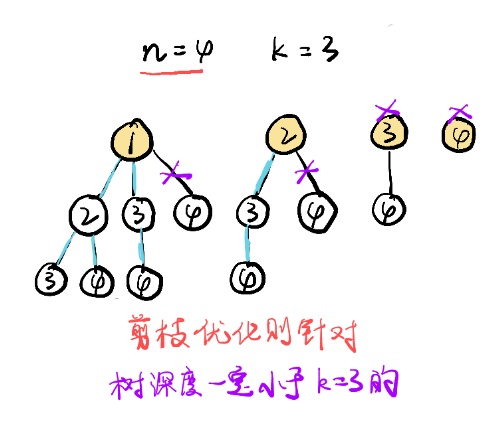 n=4 k=3
1 2 3 4
2 3 4 3 4 4
3 4 4 4
剪枝优化则针对
树深度一定小于k=3的